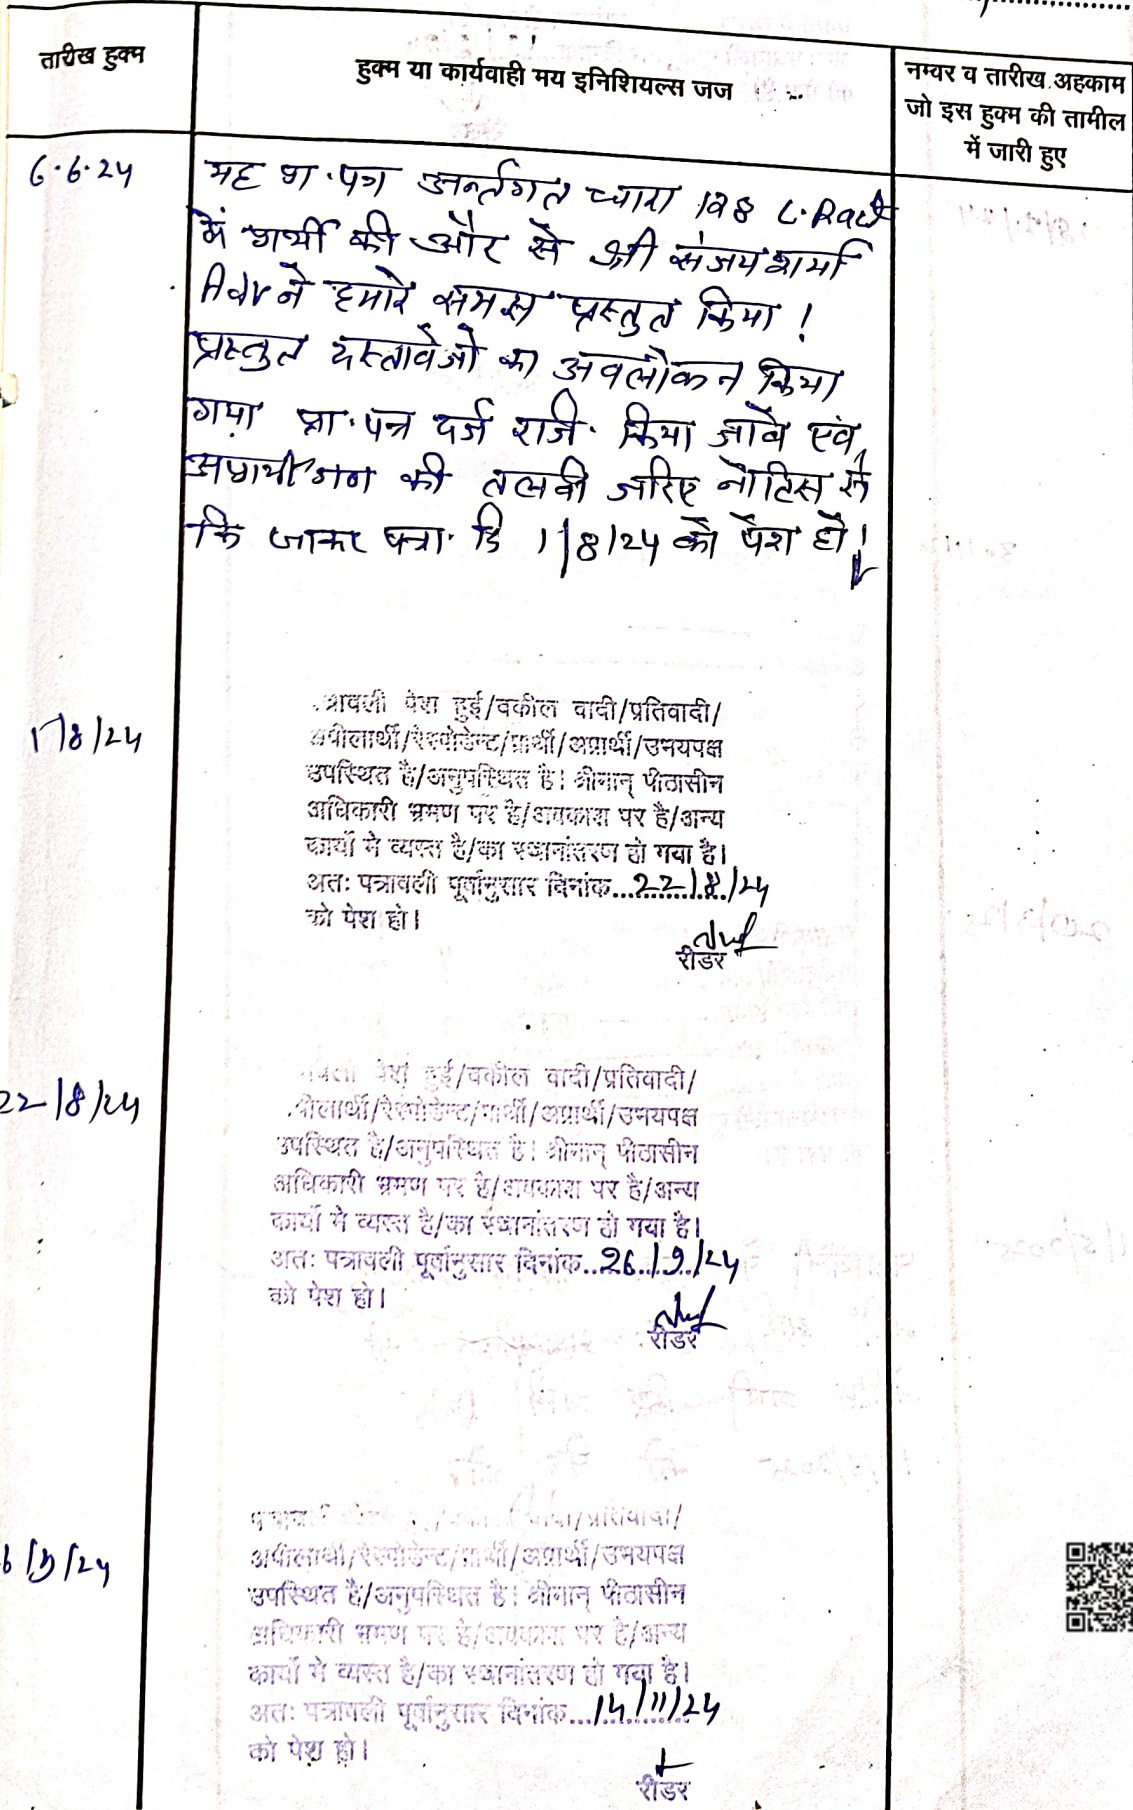 तारीख हुक्म
हुक्म या कार्यवाही मय इनिशियल्स जज
नम्वर व तारीख अहकाम
जो इस हुक्म की तामील
में जारी हुए
6.6.24
यह प्रा.पत्र अर्न्तगत धारा 128 L.R act
में प्रार्थी की और से श्री संजय शर्मा
Adv ने हमारे समक्ष प्रस्तुत किया !
प्रस्तुत दस्तावेजो का अवलोकन किया
गया प्रा.पत्र दर्ज राजि. किया जावे एंव
अप्रार्थीगण की तलबी जरिए नोटिस से
कि जाकर पत्रा. दि 1/8/24 को पेश हो!
1/8/24
त्रावली पेश हुई/वकील वादी/प्रतिवादी/
अपीलार्थी/रेस्पोडेन्ट/प्रार्थी/अप्रार्थी/उभयपक्ष
उपस्थित है/अनुपस्थित है। श्रीमान् पीठासीन
अधिकारी भ्रमण पर है/अवकाश पर है/अन्य
कार्यो मे व्यस्त है/का स्थानांतरण हो गया है।
अतः पत्रावली पूर्वानुसार दिनांक...22/8/24
को पेश हो।
रीडर
22/8/24
वली पेश हुई/वकील वादी/प्रतिवादी/
पीलार्थी/रेस्पोडेन्ट/प्रार्थी/अप्रार्थी/उभयपक्ष
उपस्थित है/अनुपस्थित है। श्रीमान् पीठासीन
अधिकारी भ्रमण पर है/अवकाश पर है/अन्य
कार्यो मे व्यस्त है/का स्थानांतरण हो गया है।
अतः पत्रावली पूर्वानुसार दिनांक..26/9/24
को पेश हो।
रीडर
6/9/24
वादी/प्रतिवादी/
अपीलार्थी/रेस्पोडेन्ट/प्रार्थी/अप्रार्थी/उभयपक्ष
उपस्थित है/अनुपस्थित है। श्रीमान् पीठासीन
अधिकारी भ्रमण पर है/अवकाश पर है/अन्य
कार्यो मे व्यस्त है/का स्थानांतरण हो गया है।
अतः पत्रावली पूर्वानुसार दिनांक...14/11/24
को पेश हो।
रीडर